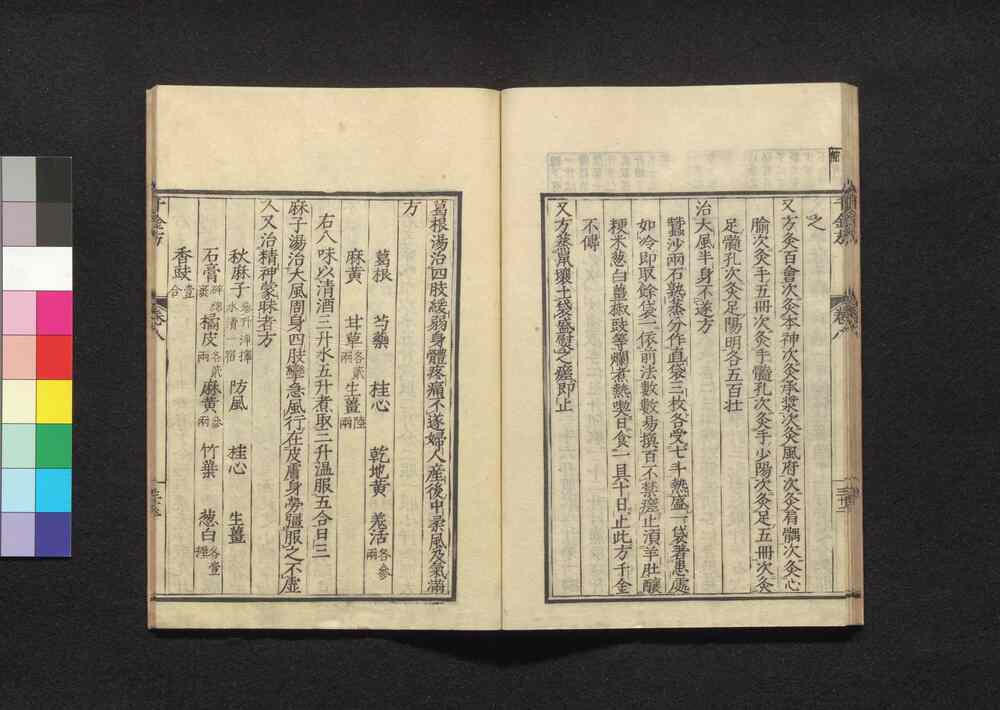 之
又方灸百會次灸本神次灸承漿次灸風府次灸肩髃次灸心
腧次灸手五冊次灸手髓孔次灸手少陽次灸足五冊次灸
足髓孔次灸足陽明各五百壮
治大風半身不遂方
蠶沙兩石熟蒸分作直袋三枚各受七斗熱盛一袋著患處
如冷即取餘袋一依前法數數易換百不禁瘥止須羊肚釀
粳米葱白薑椒豉等爛煮熱喫日食一具十日止此方千金
不傳
又方蒸鼠壤土袋盛熨之瘥即止
葛根湯治四肢緩弱身體疼痛不遂婦人産後中柔風及氣滿
方
葛根 芍藥 桂心 乾地黄 羗活各參兩
麻黄 甘草各貳兩 生薑陸兩
右八味以清酒三升水五升煮取三升温服五合日三
麻子湯治大風周身四肢攣急風行在皮膚身勞彊服之不虚
人又治精神蒙昧者方
秋麻子參升浄擇水漬一宿 防風 桂心 生薑
石膏碎綿裹 橘皮各貳兩 麻黄參兩 竹葉 葱白各壹握
香豉壹合
千金方
卷八